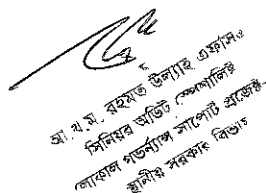 আ. খ. ম. রহমত উল্যাহ এফসিএ
সিনিয়র অডিট স্পেশালিষ্ট
লোকাল গভর্ন্যান্স সাপোর্ট প্রজেক্ট
স্থানীয় সরকার বিভাগ